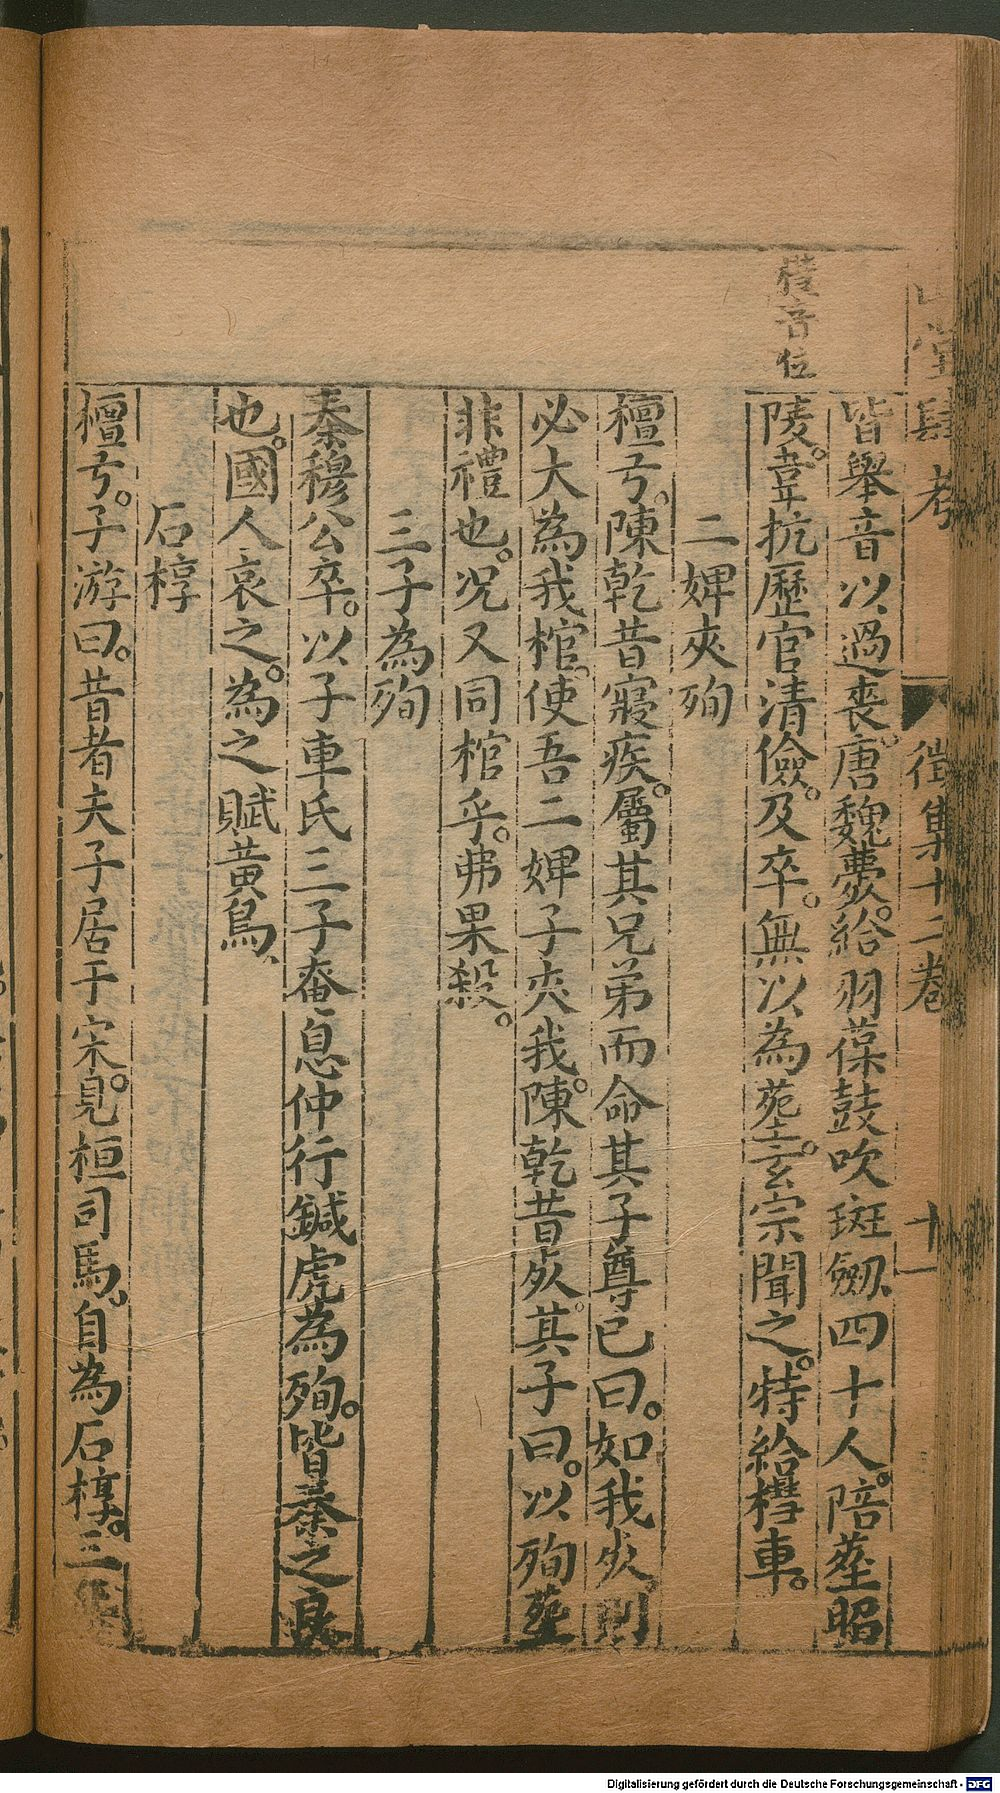 山堂肆考 徵集十二卷 十一
槥音位
皆舉音以過喪。唐魏薨。給羽葆鼓吹斑劔四十人。陪塟昭
陵。韋抗歷官清儉。及卒。無以為塟。玄宗聞之。特給槥車。
二婢夾殉
檀弓。陳乾昔寢疾。屬其兄弟而命其子尊已曰。如我死。則
必大為我棺。使吾二婢子夾我。陳乾昔死。其子曰。以殉塟
非禮也。况又同棺乎。弗果殺。
三子為殉
秦穆公卒。以子車氏三子奄息仲行鍼虎為殉。皆秦之良
也。國人哀之。為之賦黃鳥、
石椁
檀弓。子游曰。昔者夫子居于宋。見桓司馬。自為石椁。三
Digitalisierung gefördert durch die Deutsche Forschungsgemeinschaft - DFG